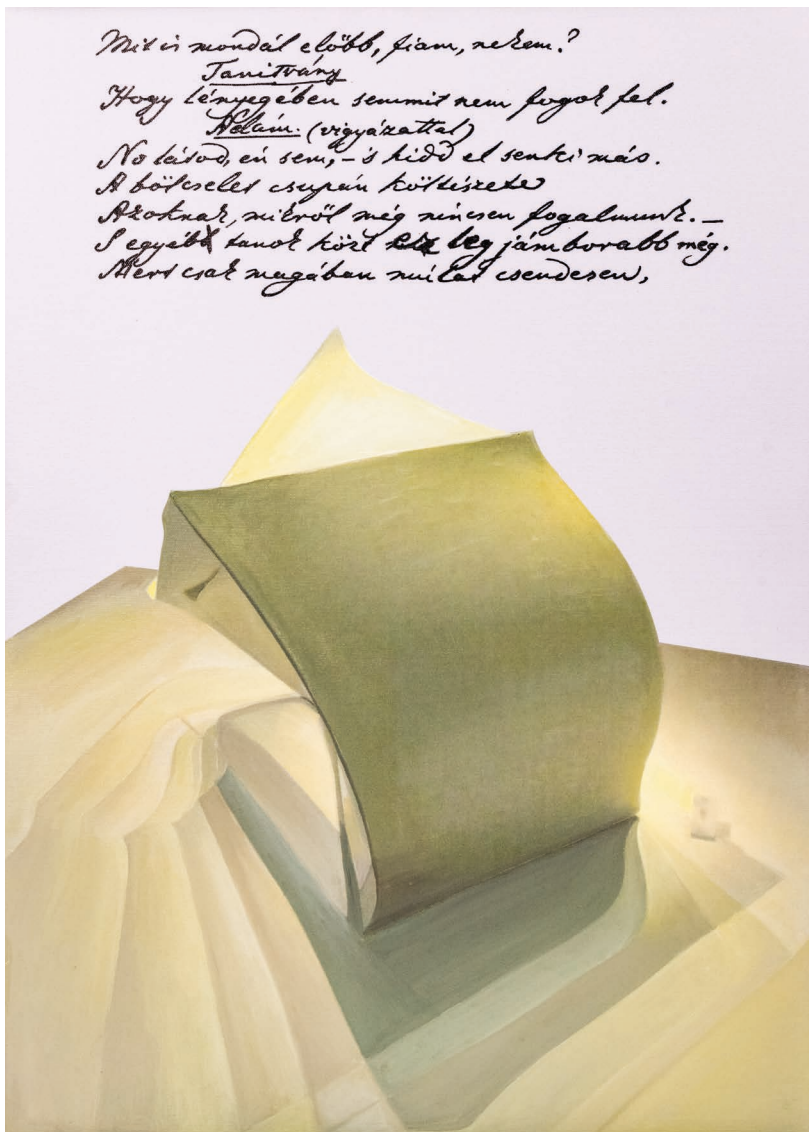 Mit is mondál előbb, fiam, nekem?
Tanitvány
Hogy lényegében semmit nem fogok fel.
Ádám. (vigyázattal)
No látod, én sem, – s hidd el senki más.
A bölcselet csupán költészete
Azoknak, mikről még nincsen fogalmunk. –
S egyéb tanok közt ez legjámborabb még.
Mert csak magában mulat csendesen,